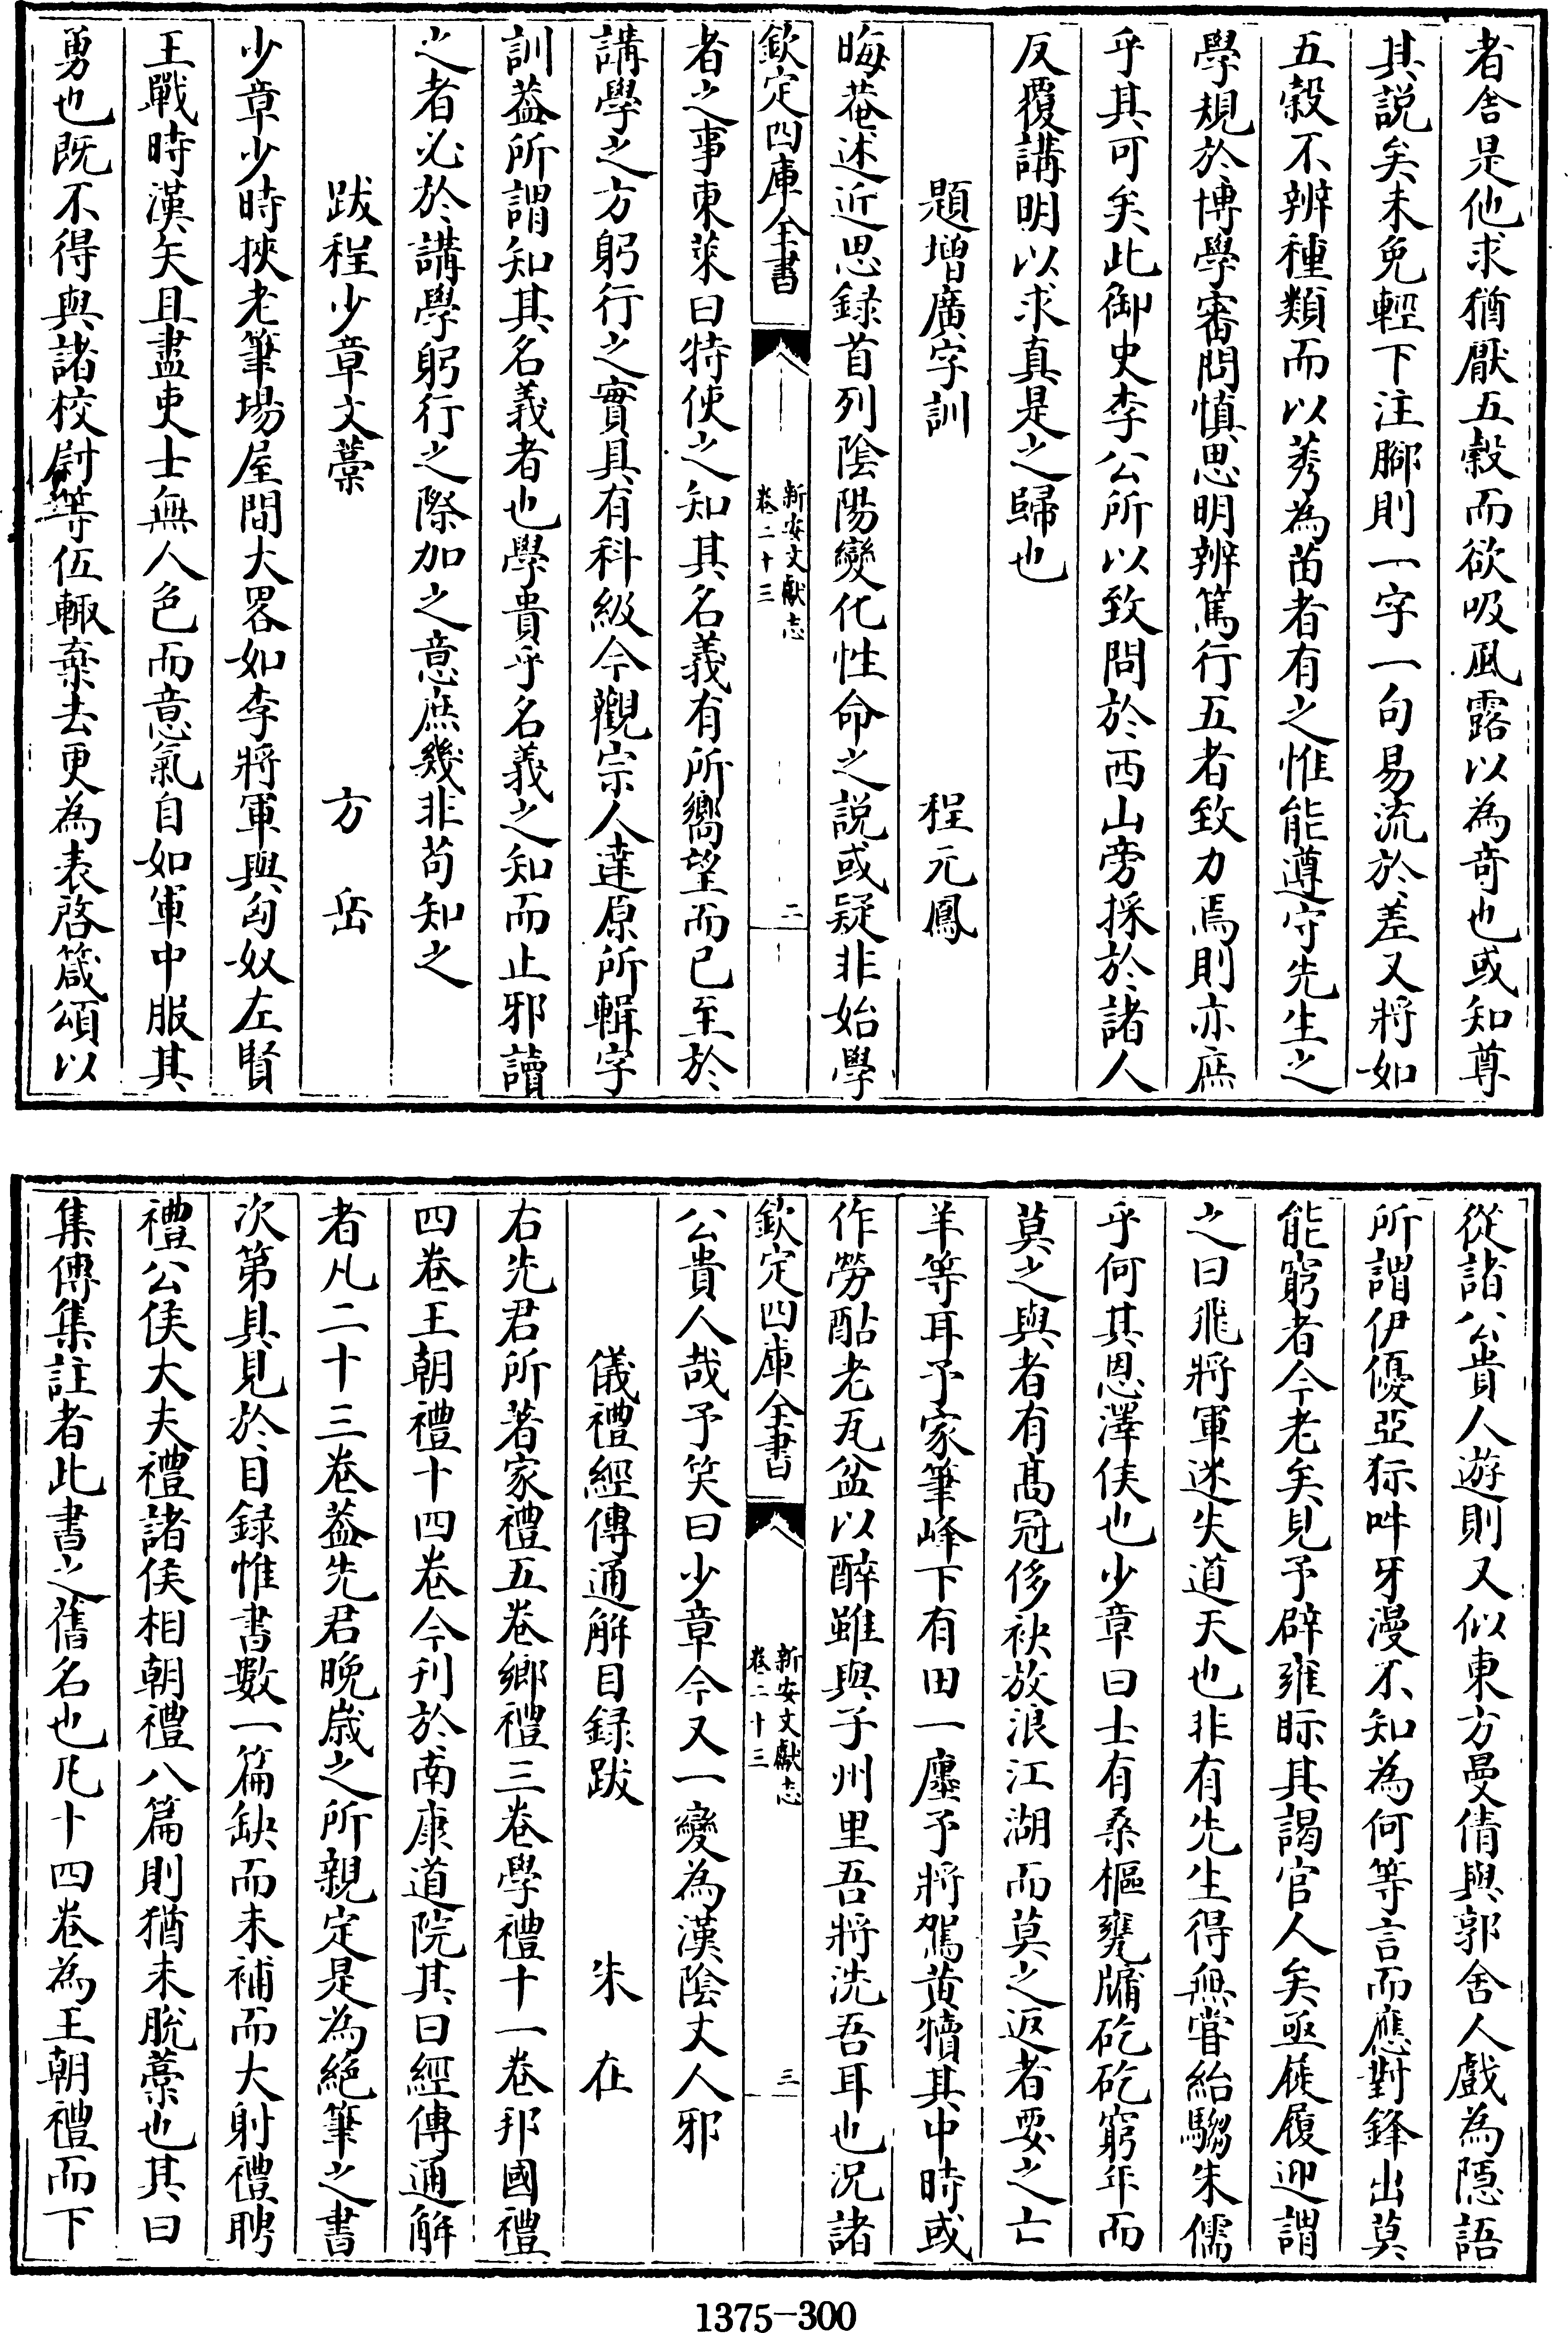 者舍是他求猶厭五穀而欲吸風露以為竒也或知尊
其說矣未免輕下注腳則一字一句易流於差又將如
五穀不辨種類而以莠為苗者有之惟能遵守先生之
學規於博學審問慎思明辨篤行五者致力焉則亦庶
乎其可矣此御史李公所以致問於西山旁採於諸人
反覆講明以求真是之歸也
題增廣字訓 程元鳳
晦菴述近思録首列陰陽變化性命之說或疑非始學
欽定四庫全書 新安文獻志 卷二十三 二
者之事東萊曰特使之知其名義有所嚮望而已至於
講學之方躬行之實具有科級今觀宗人達原所輯字
訓葢所謂知其名義者也學貴乎名義之知而止邪讀
之者必於講學躬行之際加之意庶幾非苟知之
跋程少章文藳 方岳
少章少時挾老筆場屋間大畧如李將軍與匈奴左賢
王戰時漢矢且盡吏士無人色而意氣自如軍中服其
勇也既不得與諸校尉等伍輙棄去更為表啓箴頌以
從諸公貴人遊則又似東方曼倩與郭舍人戲為隠語
所謂伊優亞狋吽牙漫不知為何等言而應對鋒出莫
能窮者今老矣見予辟雍眎其謁官人矣亟屣履迎謂
之曰飛將軍迷失道天也非有先生得無嘗紿騶朱儒
乎何其恩澤侯也少章曰士有桑樞甕牖矻矻窮年而
莫之與者有髙冠侈袂放浪江湖而莫之返者要之亡
羊等耳予家筆峰下有田一廛予將駕黄犢其中時或
作勞酤老瓦盆以醉雖與子州里吾將洗吾耳也況諸
欽定四庫全書 新安文獻志 卷二十三 三
公貴人哉予笑曰少章今又一變為漢陰丈人邪
儀禮經傳通解目録跋 朱在
右先君所著家禮五卷鄉禮三卷學禮十一卷邦國禮
四卷王朝禮十四卷今刊於南康道院其曰經傳通解
者凡二十三卷葢先君晚嵗之所親定是為絶筆之書
次第具見於目録惟書數一篇缺而未補而大射禮聘
禮公侯大夫禮諸侯相朝禮八篇則猶未脫藳也其曰
集傳集註者此書之舊名也凡十四卷為王朝禮而下
1375-300